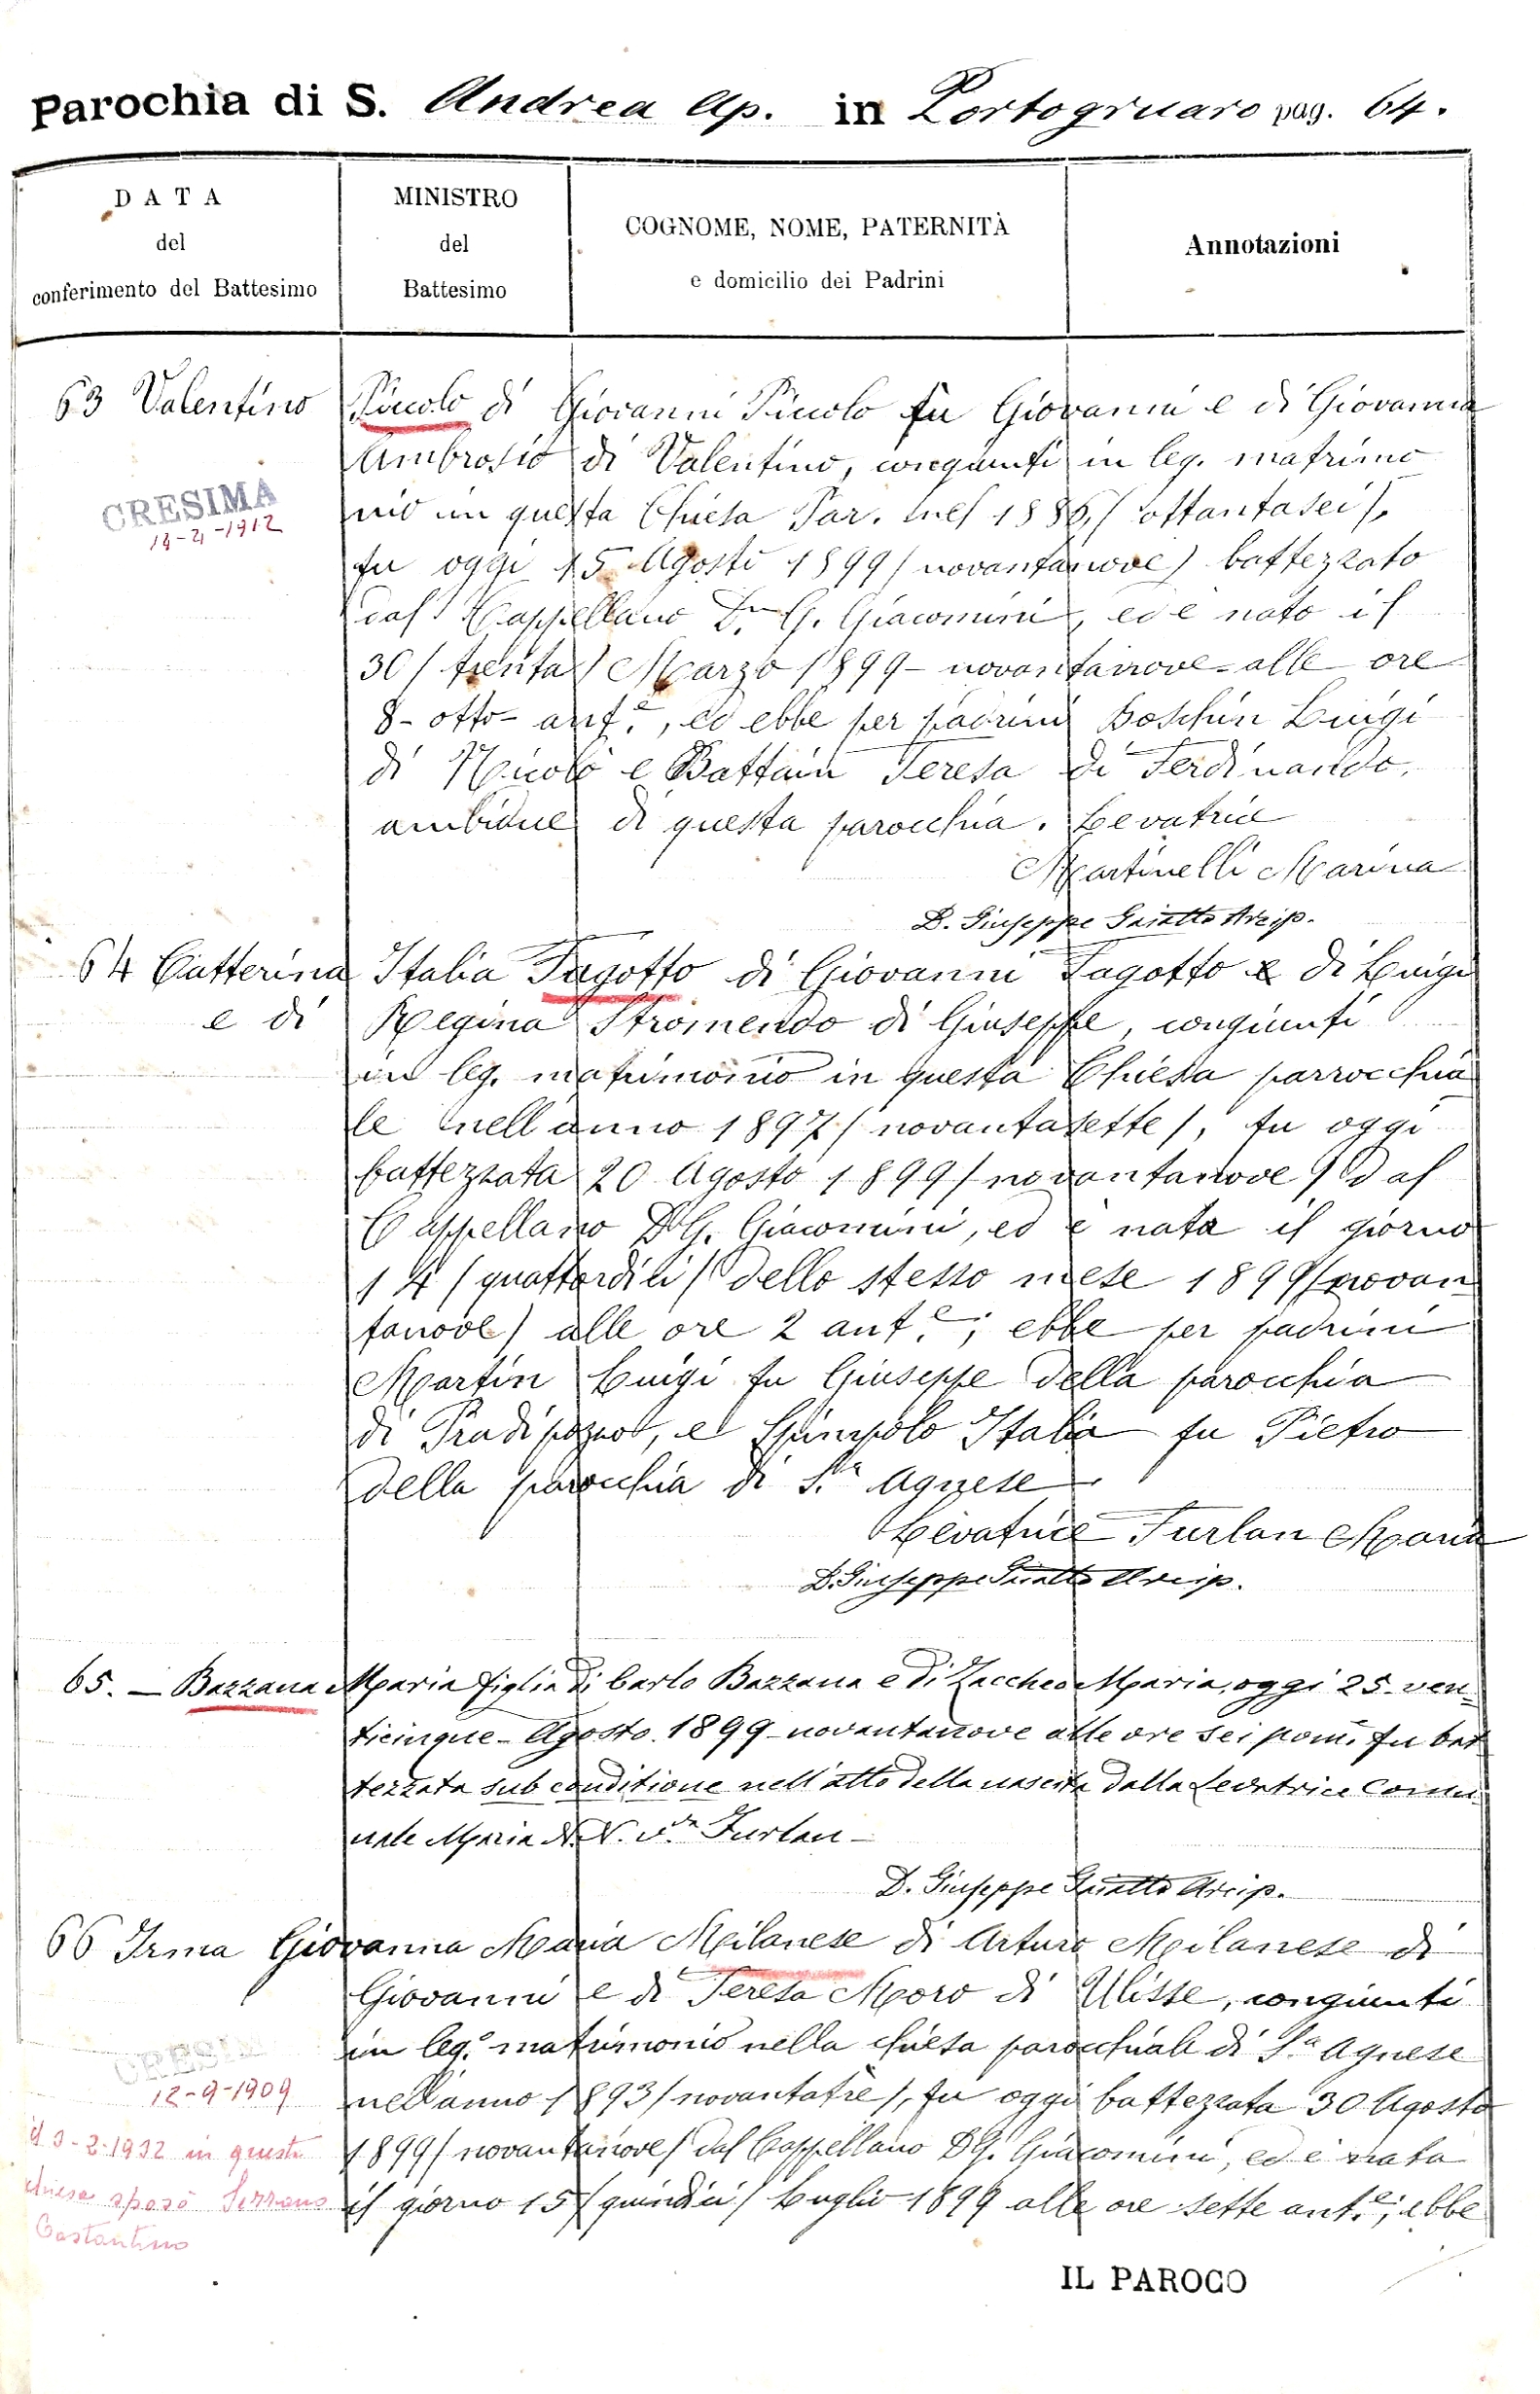 Parochia di S. Andrea Ap. in Portogruaro pag. 64.
DATA
del
conferimento del Battesimo
MINISTRO
del
Battesimo
COGNOME, NOME, PATERNITÀ
e domicilio dei Padrini
Annotazioni
63 Valentino Piccolo di Giovanni Piccolo fu Giovanni e di Giovanna
Ambrosio di Valentino, congiunti in leg. matrimo
nio in questa Chiesa Par. nel 1886 / ottantasei /,
CRESIMA
14-4-1912
fu oggi 15 Agosto 1899 / novantanove) battezzato
dal Cappellano Dn G. Giacomini, ed è nato il
30 / trenta / Marzo 1899 - novantanove - alle ore
8 - otto - ant.e, ed ebbe per padrini Boschin Luigi
di Nicolò e Battain Teresa di Ferdinando,
ambidue di questa parocchia. Levatrice
Martinelli Marina
D. Giuseppe Arcip.
64 Catterina Italia Fagotto di Giovanni Fagotto di Luigi
e di Regina Stromendo di Giuseppe, congiunti
in leg. matrimonio in questa Chiesa parrocchia
le nell anno 1897 / novantasette /, fu oggi
battezzata 20 Agosto 1899 / novantanove / dal
Cappellano D G. Giacomini, ed è nata il giorno
14 (quattordici / dello stesso mese 1899 / novan
tanove) alle ore 2 ant.e; ebbe per padrini
Martin Luigi fu Giuseppe della parocchia
di Pradipozzo, e Italia fu Pietro
della parocchia di S.ta Agnese
Levatrice Furlan Maria
D. Giuseppe Arcip.
65. — Bazzana Maria figlia di Carlo Bazzana e di Zaccheo Maria, oggi 25. ven-
ticinque - Agosto 1899 - novantanove alle ore sei pom. fu bat
tezzata sub conditione nell'atto della nascita dalla Levatrice Comu-
nale Maria N. N. Furlan -
D. Giuseppe Arcip.
66 Irma Giovanna Maria Milanese di Arturo Milanese di
Giovanni e di Teresa Moro di Ulisse, congiunti
in leg.o matrimonio nella chiesa parocchiale di S.a Agnese
nell'anno 1893 / novantatre /, fu oggi battezzata 30 Agosto
1899 / novantanove / dal Cappellano D G. Giacomini, ed è nata
il giorno 15 / quindici / Luglio 1899 alle ore sette ant.e; ebbe
CRESIMA
12-9-1909
il 3-2-1932 in questa
chiesa sposò
Costantino
IL PAROCO